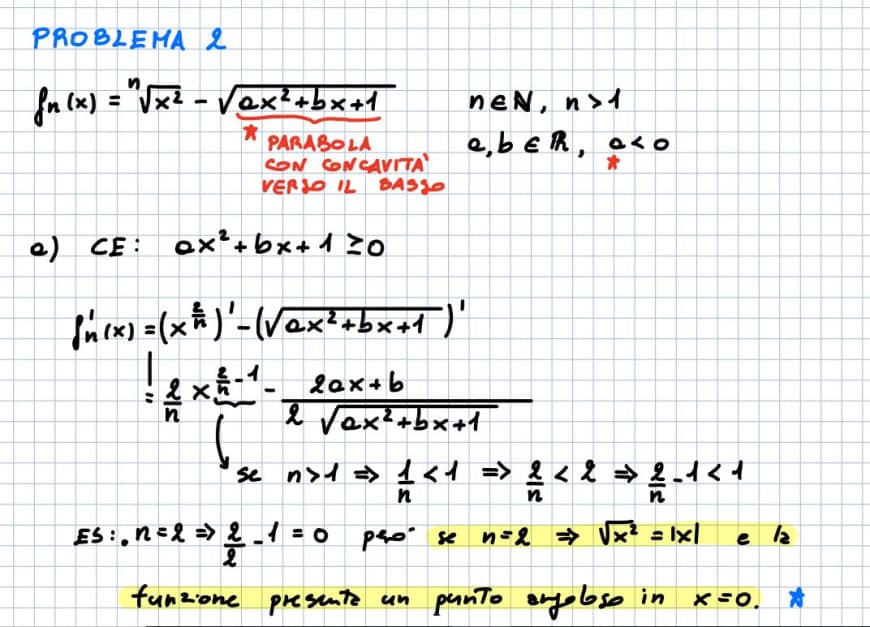 PROBLEMA 2
fn(x) = ⁿ√x² - √ax²+bx+1 n∈N, n>1
* PARABOLA a,b ∈ R, a<0
CON CONCAVITA' *
VERSO IL BASSO
a) CE: ax²+bx+1 ≥0
fn'(x) = (x^(2/n))' - (√ax²+bx+1)'
= 2/n x^(2/n - 1) - (2ax+b)/(2√ax²+bx+1)
se n>1 ⇒ 1/n < 1 ⇒ 2/n < 2 ⇒ 2/n - 1 < 1
ES: . n=2 ⇒ 2/2 - 1 = 0 però se n=2 ⇒ √x² = |x| e la
funzione presenta un punto angoloso in x=0. *